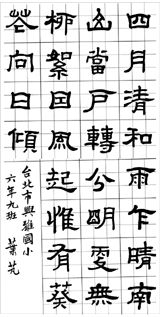 四月清和雨乍晴南
山當戶轉分明更無
柳絮因風起惟有葵
花向日傾
台北市興雅國小
六年九班 葉芃